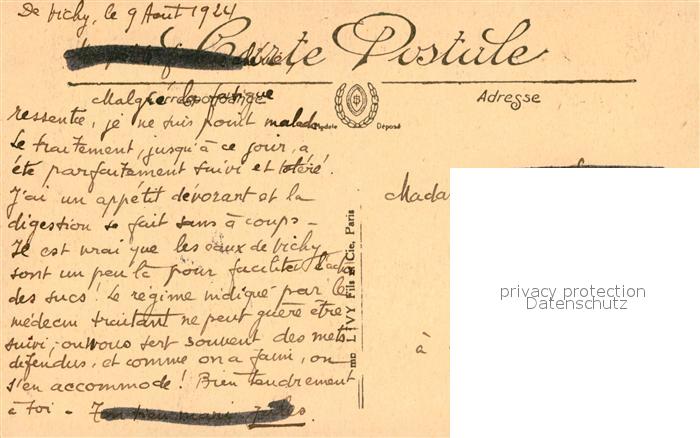 De Vichy, le 9 Août 1924
Carte Postale
Correspondance
Adresse
Modèle Déposé
Malgré la fatigue
ressentie, je ne suis point malade
Le traitement, jusqu'à ce jour, a
été parfaitement suivi et toléré.
J'ai un appétit dévorant et la
digestion se fait sans à coups -
Il est vrai que les eaux de Vichy
sont un peu là pour faciliter
des sucs! Le régime indiqué par le
médecin traitant ne peut guère être
suivi, on vous sert souvent des mets
défendus, et comme on a faim, on
s'en accommode! Bien tendrement
à toi -
LEVY Fils & Cie, Paris
Mada
à
privacy protection
Datenschutz